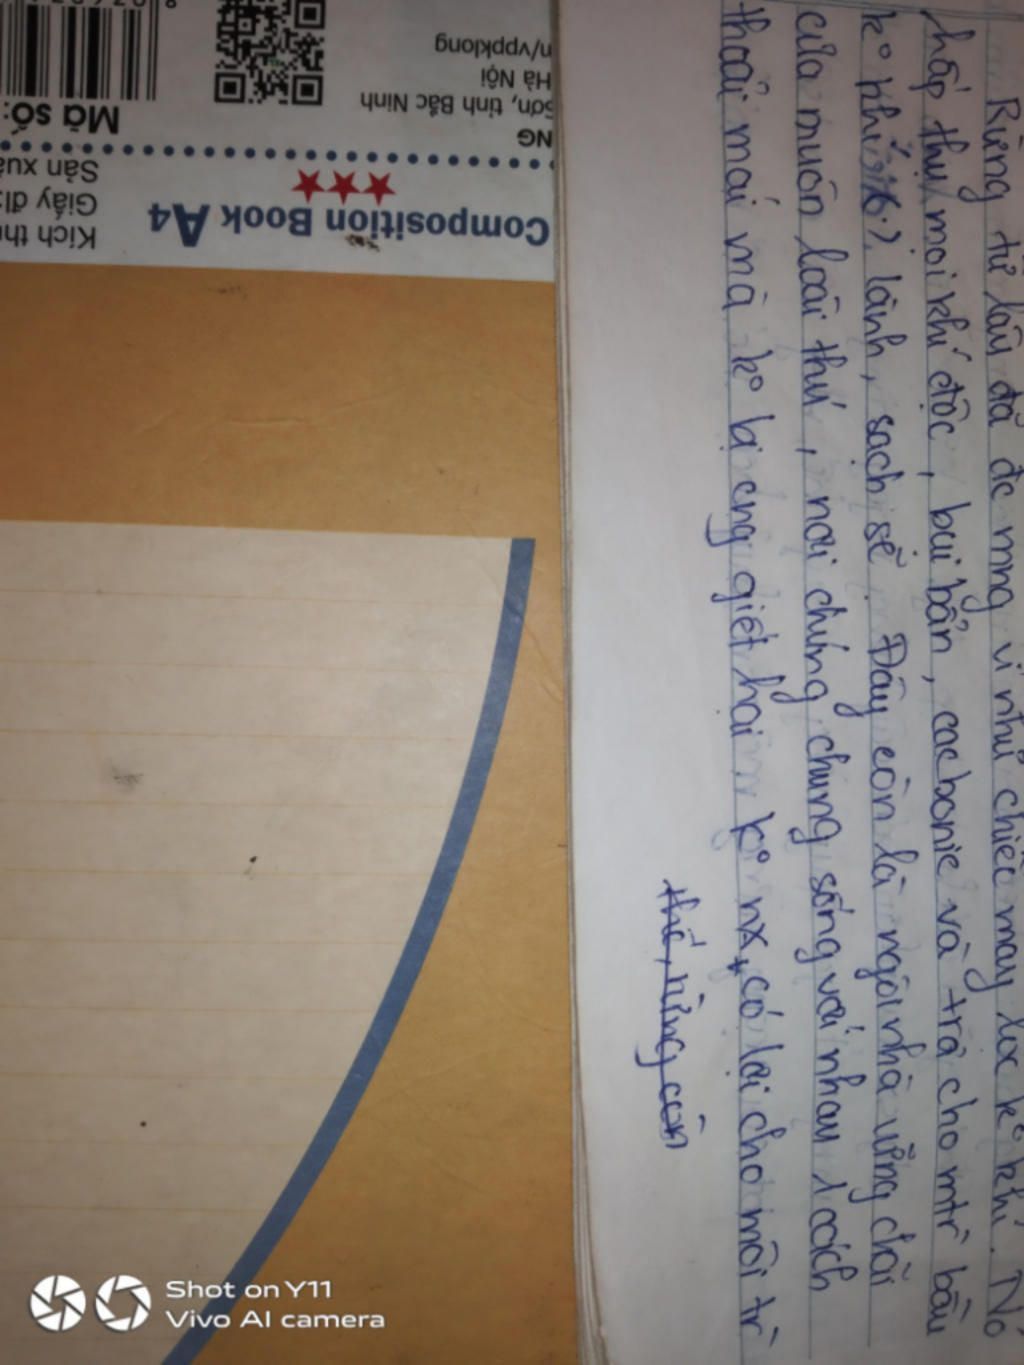 Rừng từ lâu đã đc mng ví như chiếc máy lọc kº khí. Nó
hấp thụ mọi khí độc, bụi bẩn, cacbonic và trả cho mtr bầu
kº khí lành, sạch sẽ. Đây còn là ngôi nhà vững chãi
của muôn loài thú, nơi chúng chung sống với nhau 1 cách
thoải mái mà kº bị cng giết hại kº nx, có lại cho môi tr
thế, rừng còn
Composition Book A4
Kích th
Giấy đ
Sản xu
NG
Sơn, tỉnh Bắc Ninh
Hà Nội
n/vppklong
Mã số:
Shot on Y11
Vivo AI camera